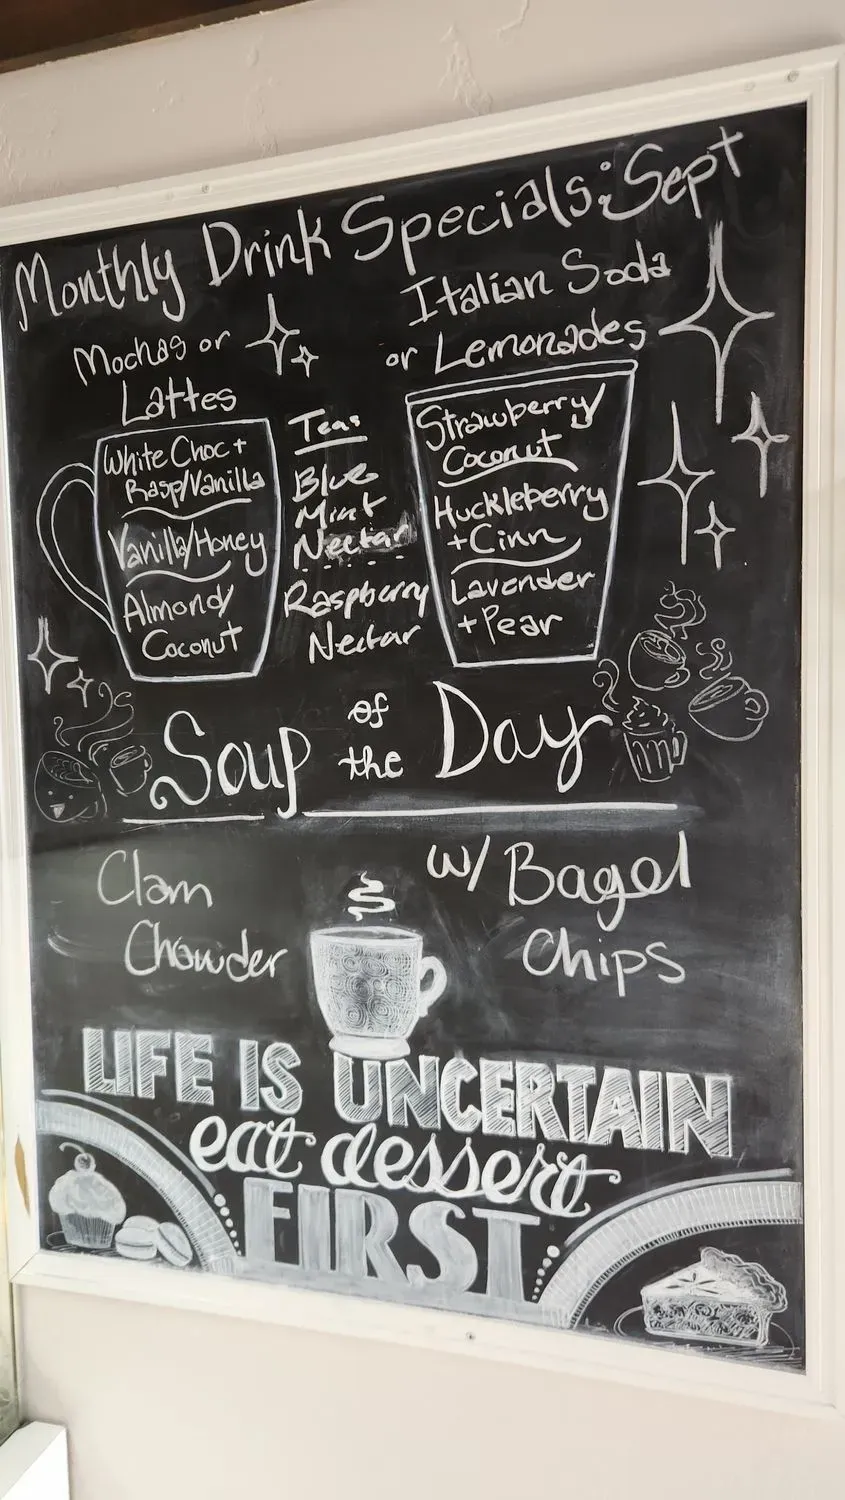 Monthly Drink Specials: Sept
Mochas or
Lattes
White Choc +
Rasp/Vanilla
Vanilla/Honey
Almond/
Coconut
Teas
Blue
Mint
Nectar
Raspberry
Nectar
Italian Soda
or Lemonades
Strawberry/
Coconut
Huckleberry
+Cinn
Lavender
+Pear
Soup of the Day
Clam
Chowder
w/ Bagel
Chips
LIFE IS UNCERTAIN
eat dessert
FIRST